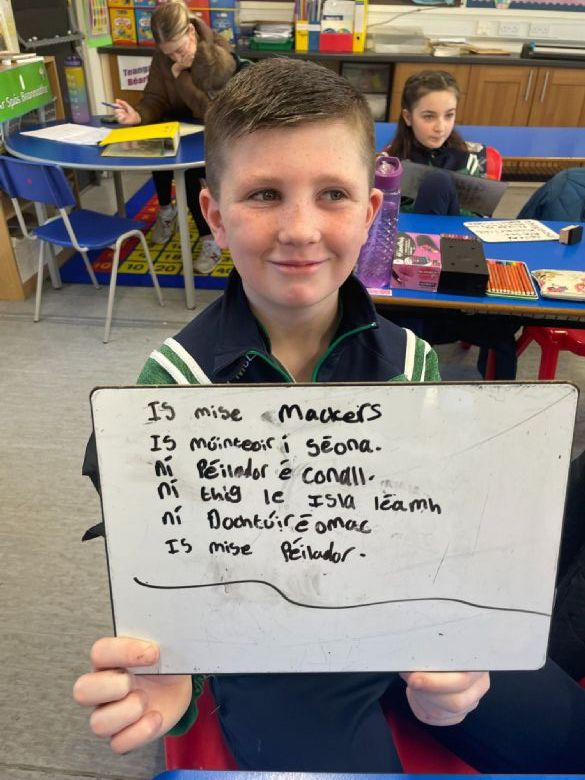 Is mise Mackers
Is múinteoir í Séona.
ní Péiladór é conall.
ní thig le Isla léamh
ní Dochtúir éomac
Is mise Péilador.